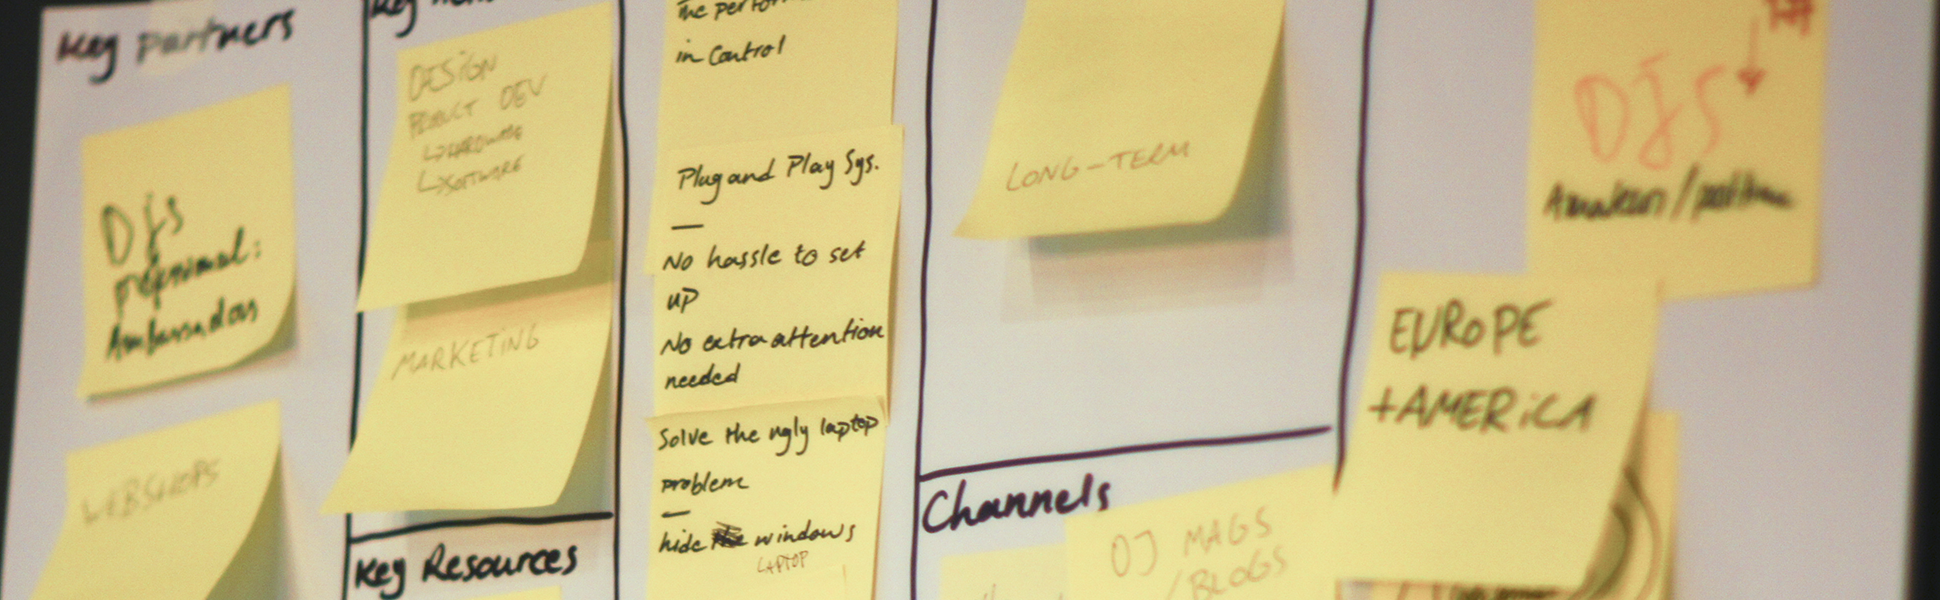 Key partners
DJs
Ambassadors
WEBSHOPS
Key
DESIGN
PRODUCT DEV
↳HARDWARE
↳SOFTWARE
MARKETING
Key Resources
the
in control
Plug and Play Sys.
—
No hassle to set
up
No extra attention
needed
Solve the ugly laptop
problem
—
hide windows
LAPTOP
LONG-TERM
Channels
DJ MAGS
/BLOGS
DJs
EUROPE
+AMERICA